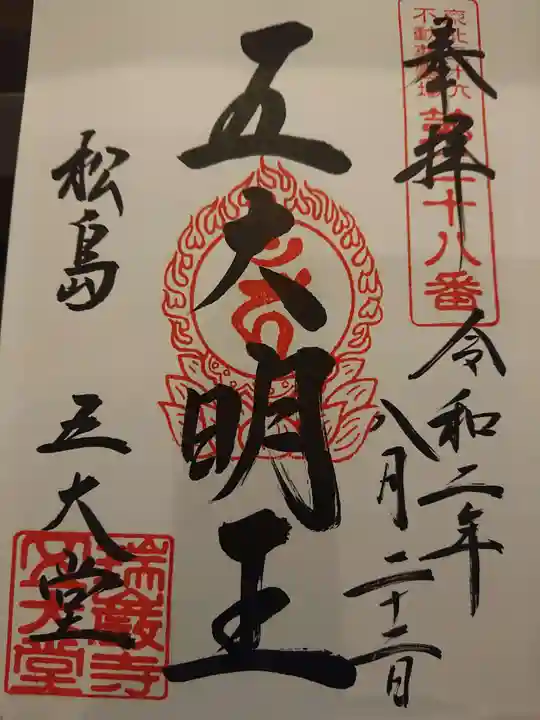 奉拝
東北三十六
不動尊霊場
第二十八番
令和二年
八月二十二日
五大明王
松島
五大堂
瑞巌寺
五大堂